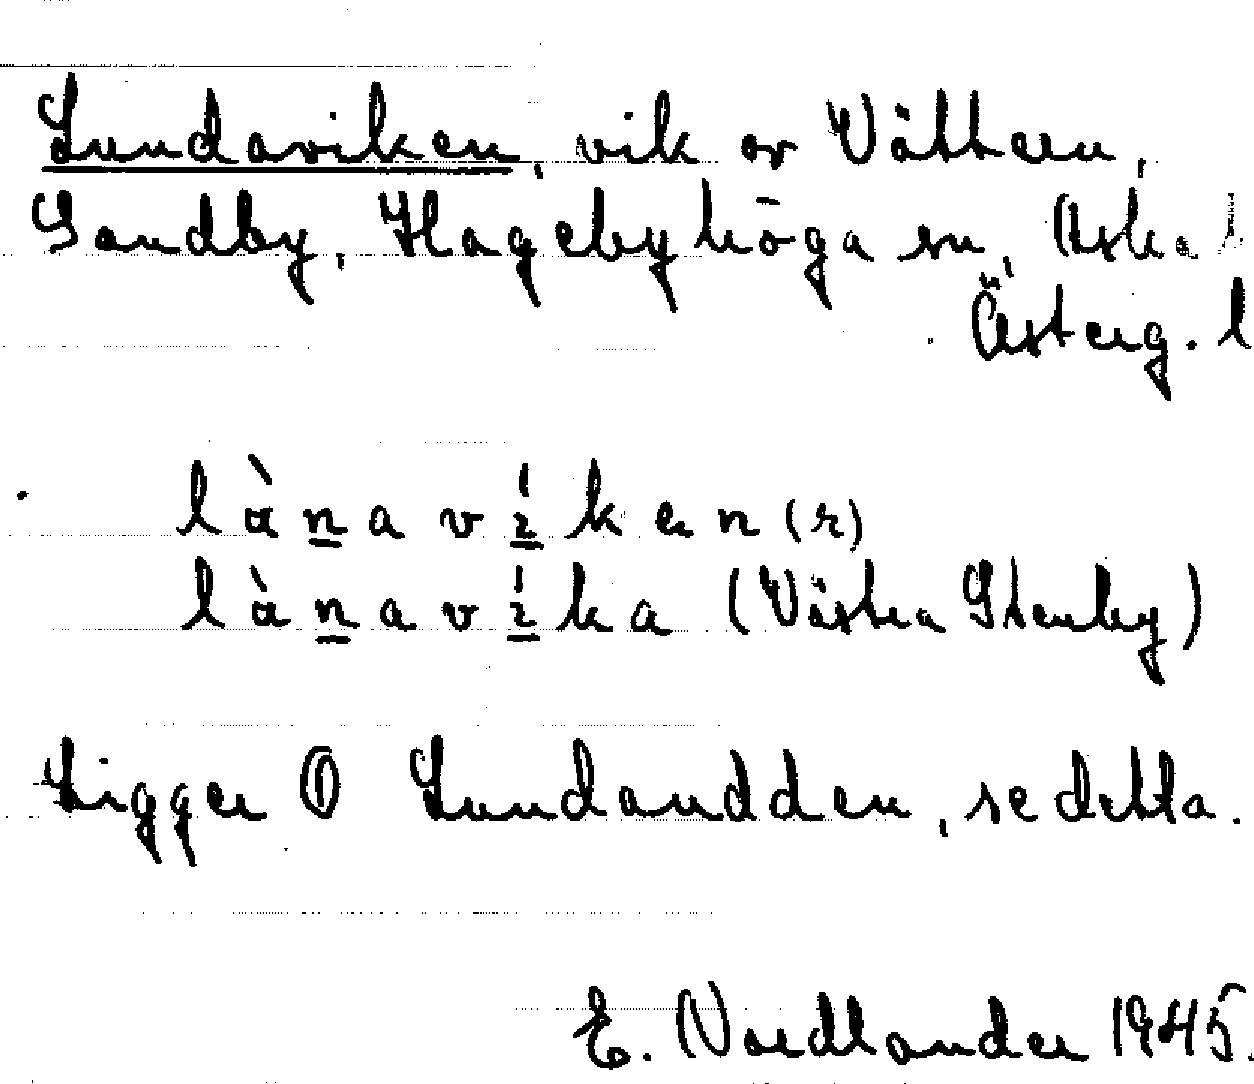 Lundaviken, vik av Vättern,
Sandby, Hagebyhöga sn, Aska h
Österg. l
lànavíken (r)
lànavíka (Västra Stenby)
Ligger O Lundaudden, se detta.
E. Nordlander 1945.